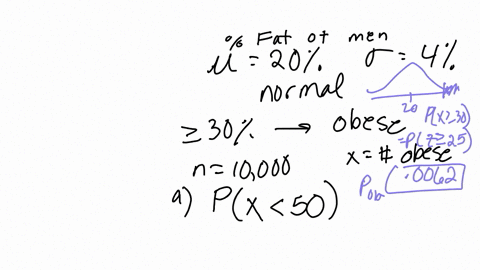 % Fat of men
μ = 20%. σ = 4%
normal
20
≥ 30% → obese
P(X ≥ 30)
= P(Z ≥ 2.5)
n = 10,000
x = # obese
P ob .0062
a) P(X < 50)